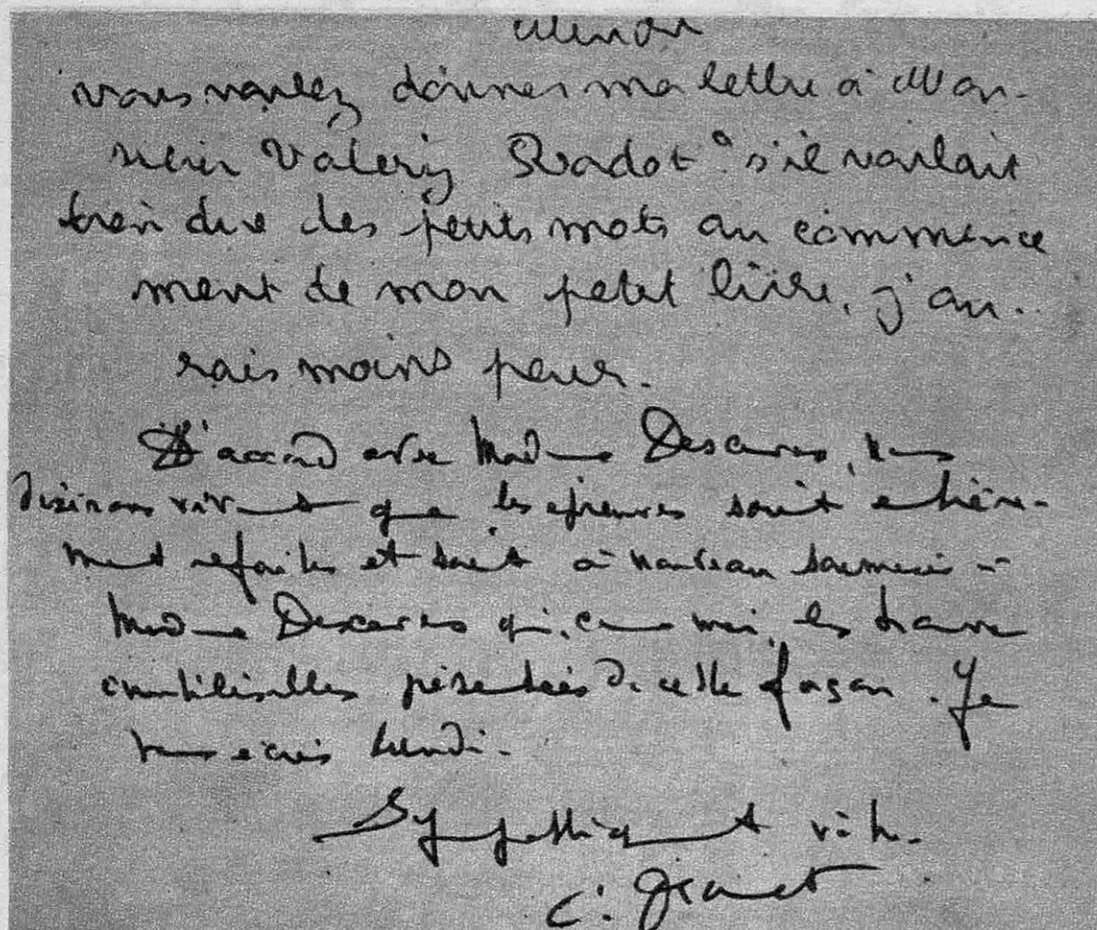 vous voulez donner ma lettre à Mon-
sieur Valery Radot s'il voulait
bien dire des petits mots au commence
ment de mon petit livre, j'au-
rais moins peur.
D'accord avec Madame Descaves, nous
désirons vivement que les épreuves soient entière-
ment refaites et soient à nouveau soumises à
Madame Descaves qui, comme moi, les trouve
inutilisables présentées de cette façon. Je
vous écris lundi.
Sympathiquement vôtre.
C.